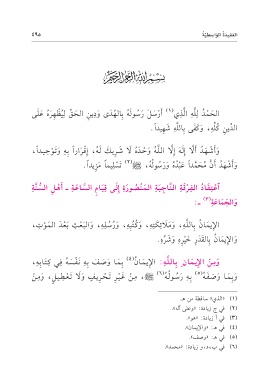 العقيدة الواسطيّة ٤٩٥
بِسْمِ اللَّهِ الرَّحْمَنِ الرَّحِيمِ
الحَمْدُ لِلَّهِ الَّذِي(١) أَرْسَلَ رَسُولَهُ بِالهُدَى وَدِينِ الحَقِّ لِيُظْهِرَهُ عَلَى
الدِّينِ كُلِّهِ، وَكَفَى بِاللَّهِ شَهِيداً.
وَأَشْهَدُ أَلَّا إِلَهَ إِلَّا اللَّهُ وَحْدَهُ لَا شَرِيكَ لَهُ، إِقْرَاراً بِهِ وَتَوْحِيداً،
وَأَشْهَدُ أَنَّ مُحَمَّداً عَبْدُهُ وَرَسُولُهُ، ﷺ(٢) تَسْلِيماً مَزِيداً.
اعْتِقَادُ الفِرْقَةِ النَّاجِيَةِ المَنْصُورَةِ إِلَى قِيَامِ السَّاعَةِ ـ أَهْلِ السُّنَّةِ
وَالجَمَاعَةِ(٣) ـ:
الإِيمَانُ بِاللَّهِ، وَمَلَائِكَتِهِ، وَكُتُبِهِ، وَرُسُلِهِ، وَالبَعْثِ بَعْدَ المَوْتِ،
وَالإِيمَانُ بِالقَدَرِ خَيْرِهِ وَشَرِّهِ.
وَمِنَ الإِيمَانِ بِاللَّهِ: الإِيمَانُ(٤) بِمَا وَصَفَ بِهِ نَفْسَهُ فِي كِتَابِهِ،
وَبِمَا وَصَفَهُ(٥) بِهِ رَسُولُهُ(٦) ﷺ، مِنْ غَيْرِ تَحْرِيفٍ وَلَا تَعْطِيلٍ، وَمِنْ
(١) «الذي» ساقطة من هـ.
(٢) في ج زيادة: «وعلى آله».
(٣) في أ زيادة: «هو».
(٤) في هـ: «والإيمان».
(٥) في هـ: «وصف».
(٦) في ب، د، و زيادة: «محمد».